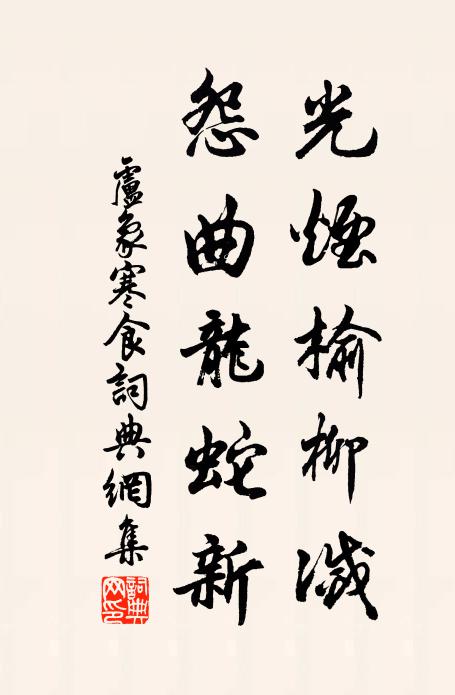 光煙榆柳滅
怨曲龍蛇新
盧象寒食詞典網集
詞典網印